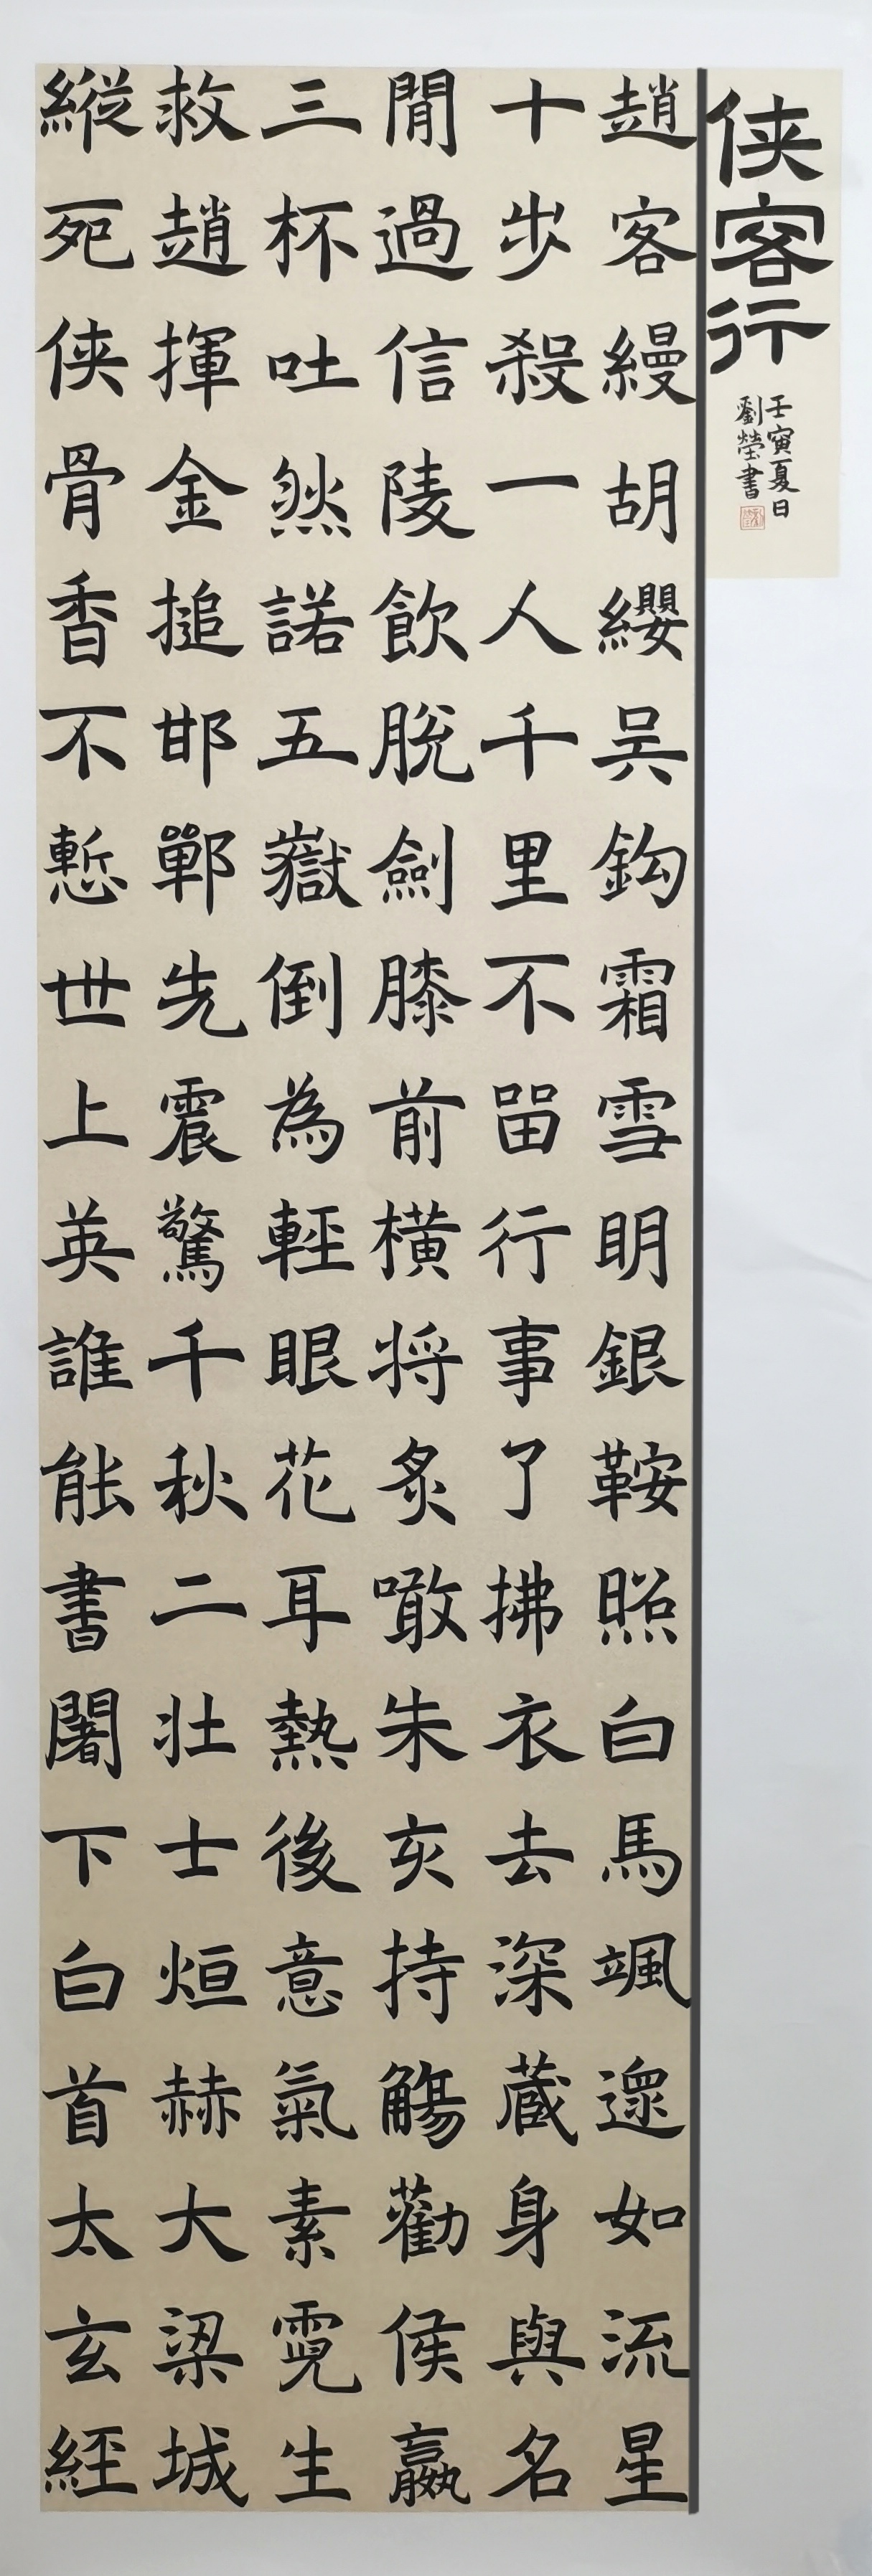 侠客行
壬寅夏日
劉瑩書
趙客縵胡纓吴鈎霜雪明銀鞍照白馬颯遝如流星
十步殺一人千里不留行事了拂衣去深蔵身與名
閒過信陵飲脫劍膝前横将炙噉朱亥持觴勸侯嬴
三杯吐然諾五嶽倒為輕眼花耳熱後意氣素霓生
救趙揮金槌邯鄲先震驚千秋二壯士烜赫大梁城
縱死侠骨香不慙世上英誰能書閣下白首太玄經